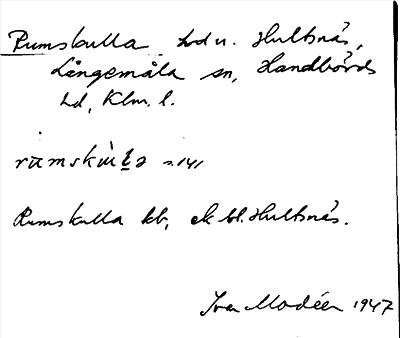 Rumskulla. hd u. Hultsnäs,
Långemåla sn, Handbörds
hd, Klm. l.
s. 141
Rumskulla kb, ek bl. Hultsnäs.
Ivar Modéer 1947